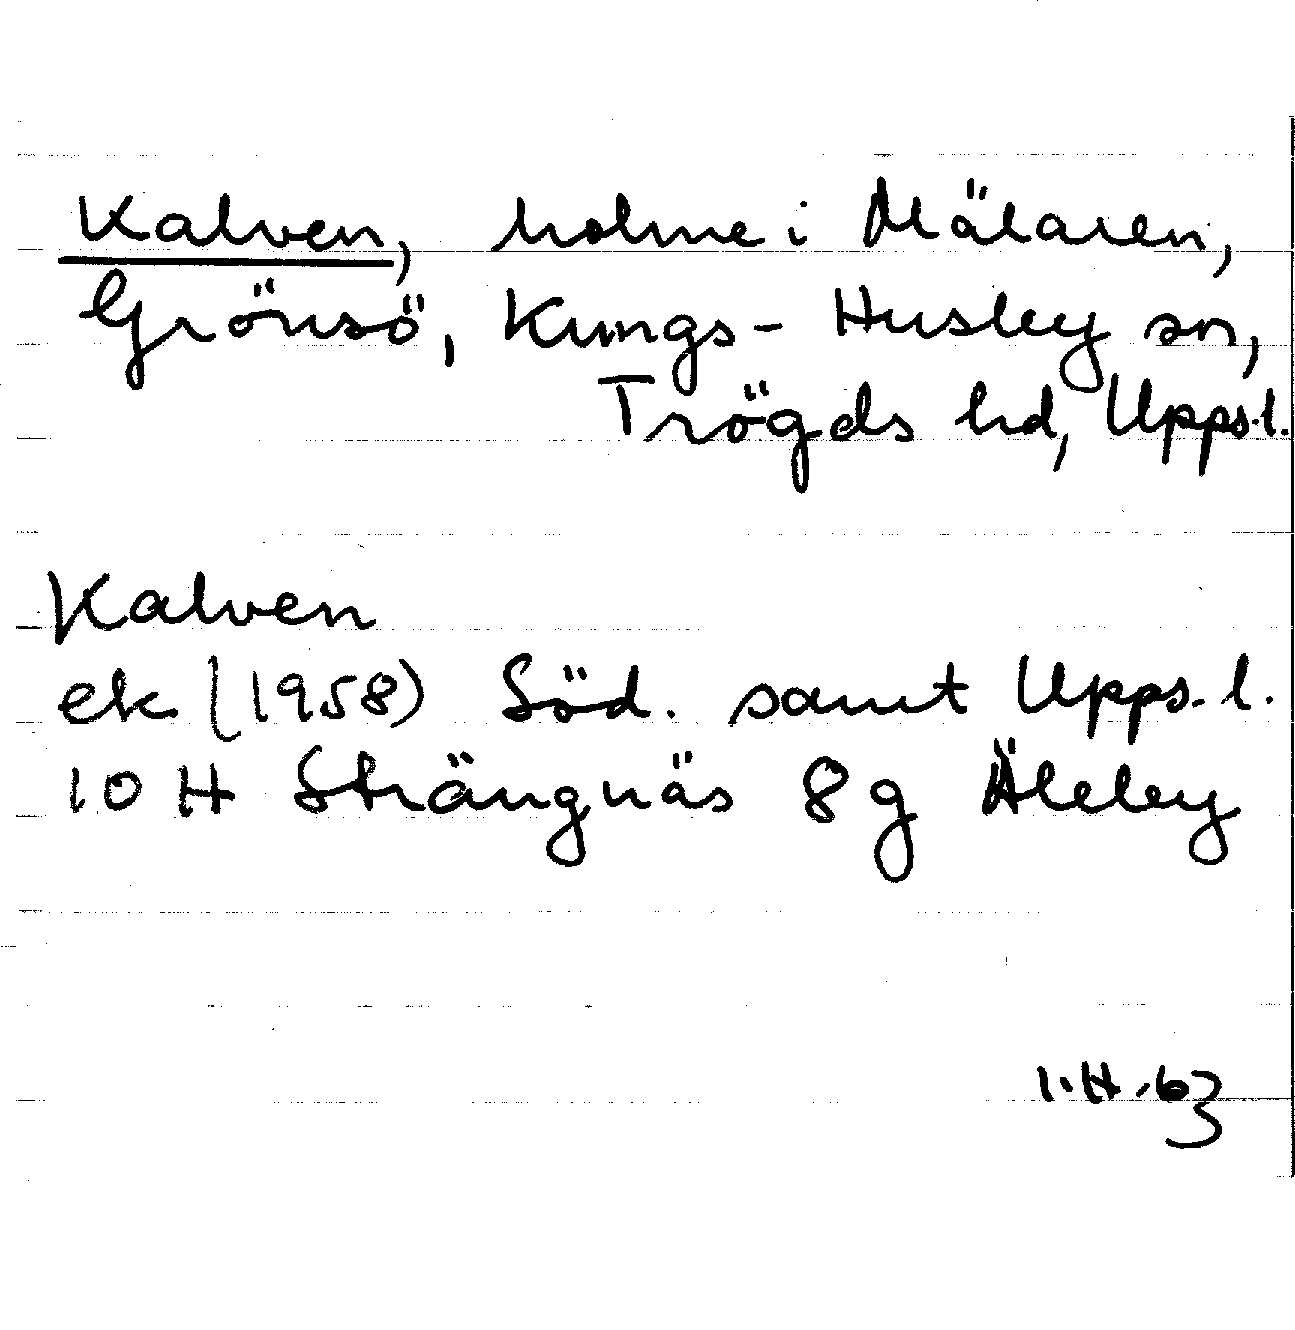 Kalven, holme i Mälaren,
Grönsö, Kungs-Husby sn,
Trögds hd, Upps.l.
Kalven
ek (1958) Söd. samt Upps.l.
10 H Strängnäs 8 g Äleby
I.H.63